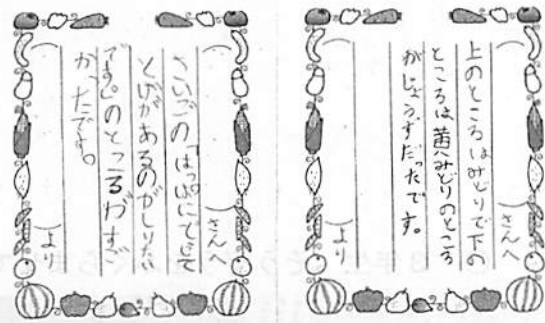 さんへ
上のところはみどりで下の
ところは黄みどりのところ
がじょうずだったです。
より
さんへ
さいごの「はっぱにでとて
とげがあるのがしりたい
です。」のところがすご
かったです。
より